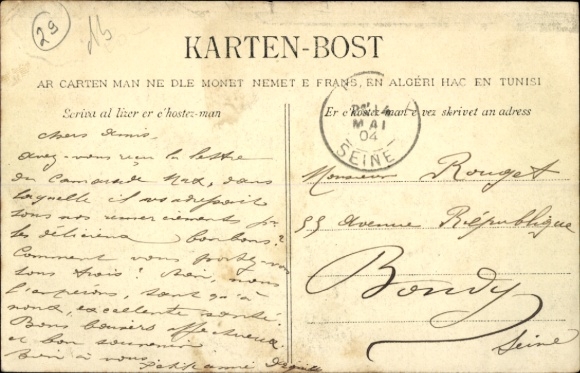 29
KARTEN-BOST
AR CARTEN MAN NE DLE MONET NEMET E FRANS, EN ALGÉRI HAC EN TUNISI
Scriva al lizer er c'hostez-man
Er c'hostez-man e vez skrivet an address
MAI
04
SEINE
Chers Amis,
Avez-vous reçu la lettre
du Camarade dans
laquelle il vous adressait
tous nos remerciements pr
les délicieux bonbons?
Comment vous portez-vous
tous trois? Bien, nous
l'espérons, tant qu'à
nous, excellente santé.
Bons baisers affectueux
et bon souvenir.
Bien à vous
Petite amie
Monsieur Rouget
55 Avenue République
Bondy
Seine